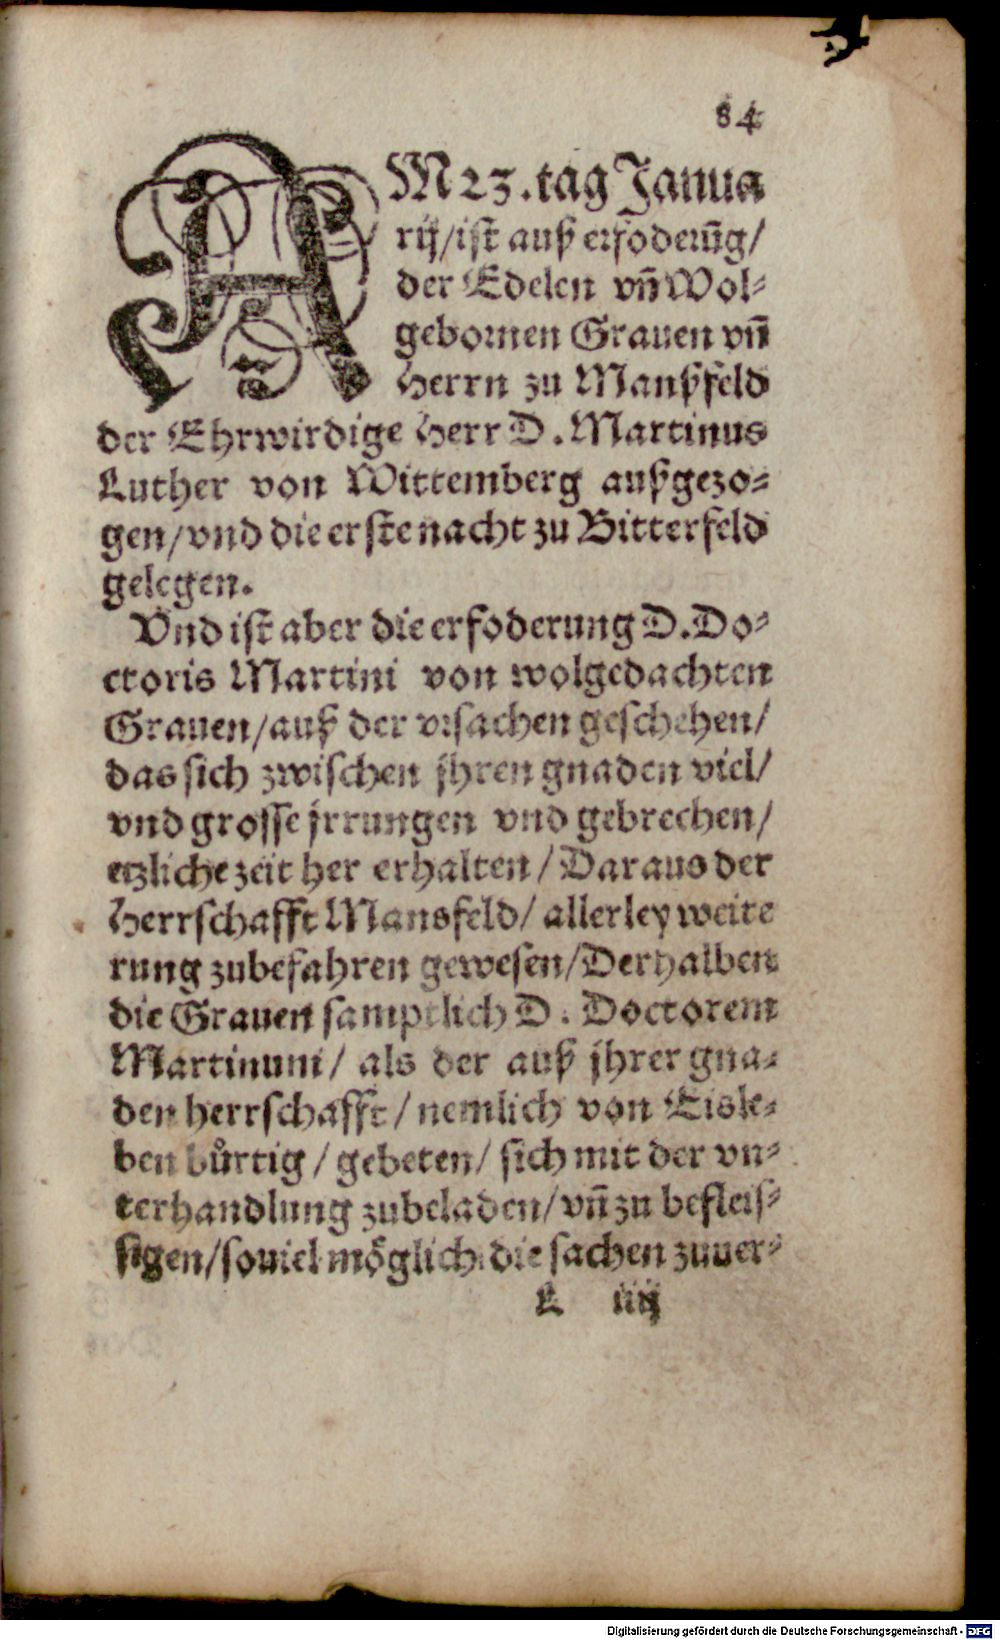 84
AM 23. tag Janua
rij/ist auß erfoderũg/
der Edelen vñ Wol-
gebornen Grauen vñ
Herrn zu Manßfeld
der Ehrwirdige Herr D. Martinus
Luther von Wittemberg außgezo-
gen/vnd die erste nacht zu Bitterfeld
gelegen.
Vnd ist aber die erfoderung D. Do-
ctoris Martini von wolgedachten
Grauen/auß der vrsachen geschehen/
das sich zwischen jhren gnaden viel/
vnd grosse jrrungen vnd gebrechen/
etzliche zeit her erhalten/Daraus der
Herrschafft Mansfeld/allerley weite
rung zubefahren gewesen/Derhalben
die Grauen samptlich D. Doctorem
Martinum/ als der auß jhrer gna-
den herrschafft/nemlich von Eisle-
ben bůrtig/gebeten/sich mit der vn-
terhandlung zubeladen/vñ zu befleis-
sigen/souiel möglich die sachen zuuer-
L iiij
Digitalisierung gefördert durch die Deutsche Forschungsgemeinschaft - DFG